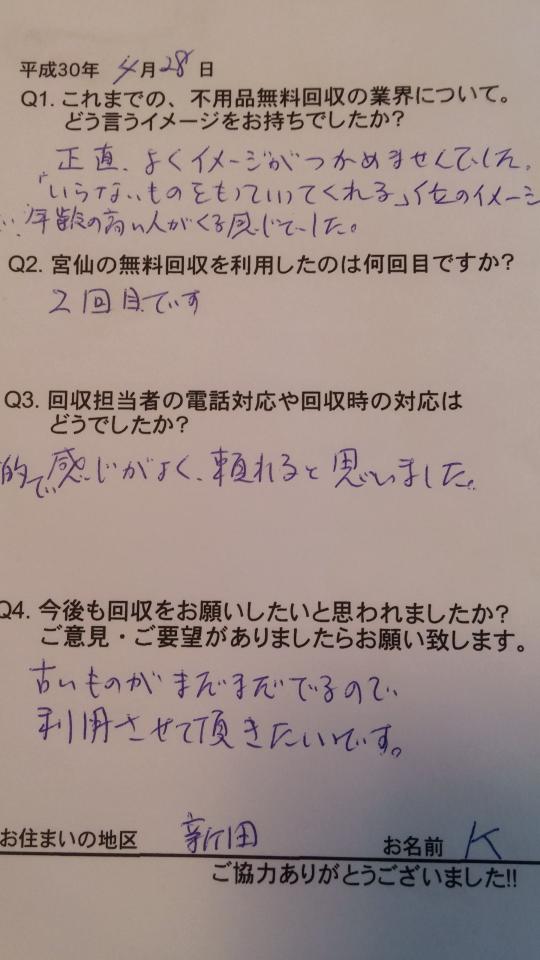 平成30年 4月28日
Q1. これまでの、不用品無料回収の業界について。
どう言うイメージをお持ちでしたか?
正直、よくイメージがつかめませんでした。
「いらないものをもっていってくれる」位のイメージ
年齢の高い人がくる感じでした。
Q2. 宮仙の無料回収を利用したのは何回目ですか?
2回目です
Q3. 回収担当者の電話対応や回収時の対応は
どうでしたか?
的で感じがよく、頼れると思いました。
Q4. 今後も回収をお願いしたいと思われましたか?
ご意見・ご要望がありましたらお願い致します。
古いものがまだまだでるので、
利用させて頂きたいです。
お住まいの地区 新田 お名前 K
ご協力ありがとうございました!!